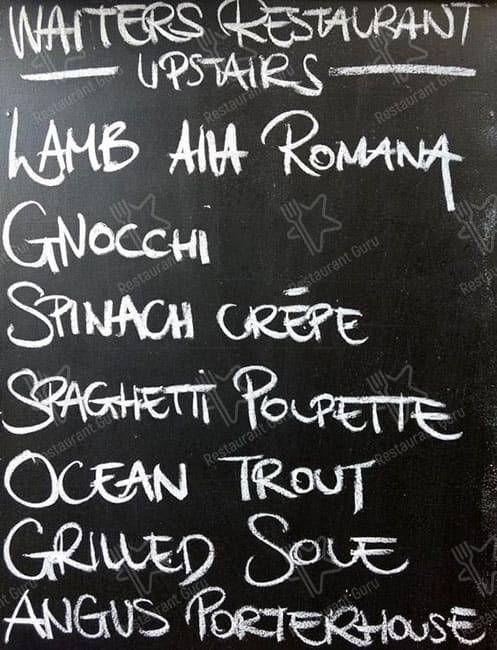 WAITERS RESTAURANT
UPSTAIRS
LAMB AllA ROMANA
GNOCCHI
SPINACH CRĒPE
SPAGHETTI POLPETTE
OCEAN TROUT
GRILLED SOLE
ANGUS PORTERHOUSE
Restaurant Guru